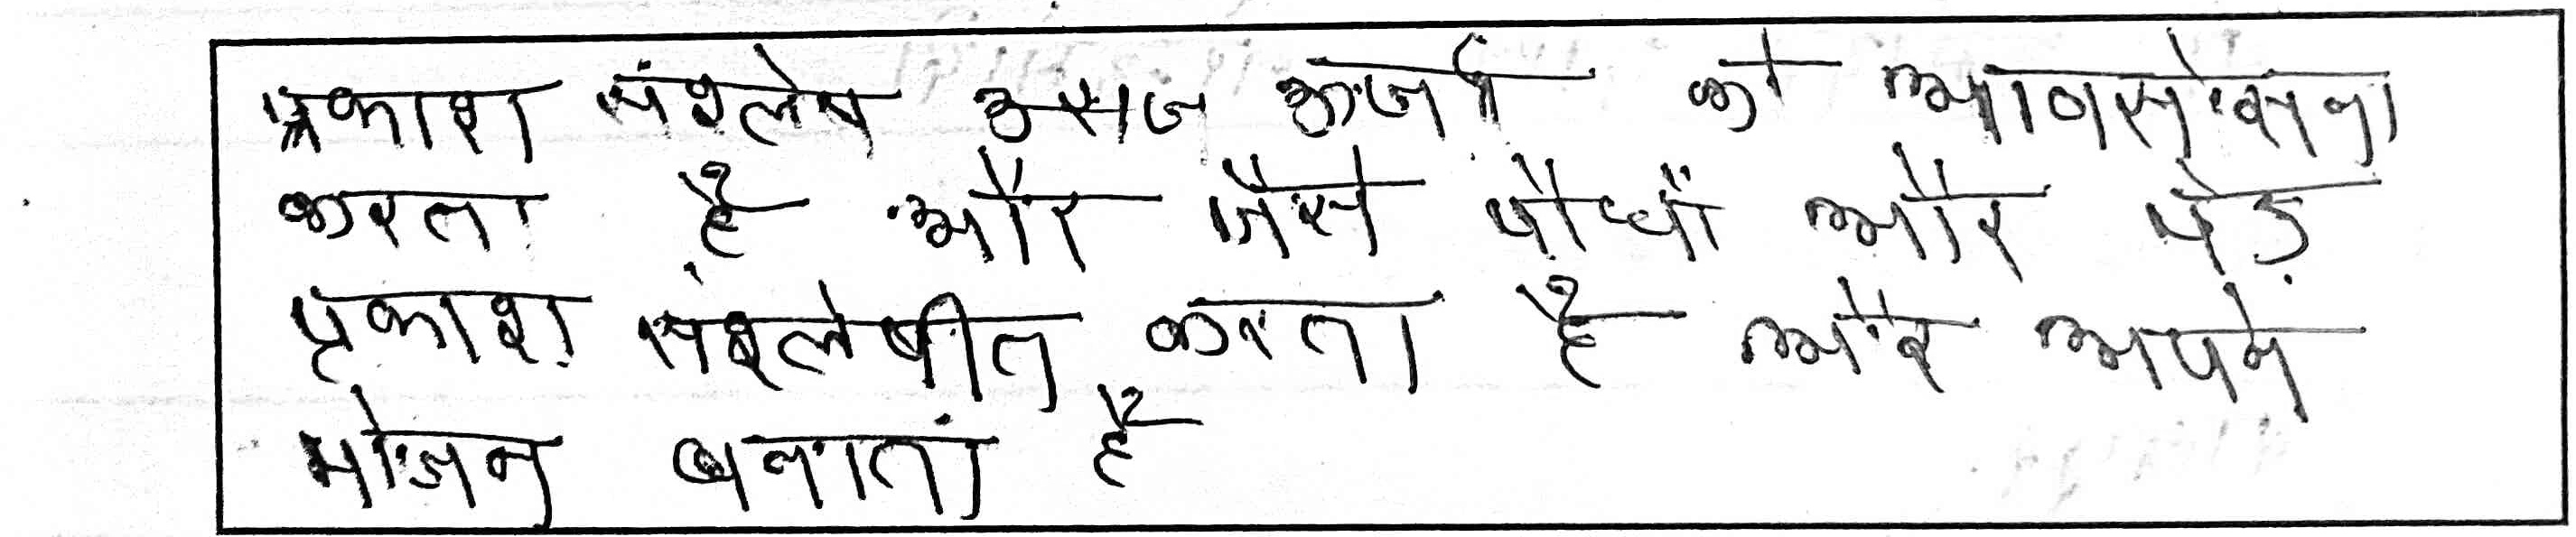 प्रकाश संश्लेष ऊर्जा को
करता है और जैसे पौधों और पेड़
प्रकाश संश्लेषीत करता है और अपने
भोजन बनाता है